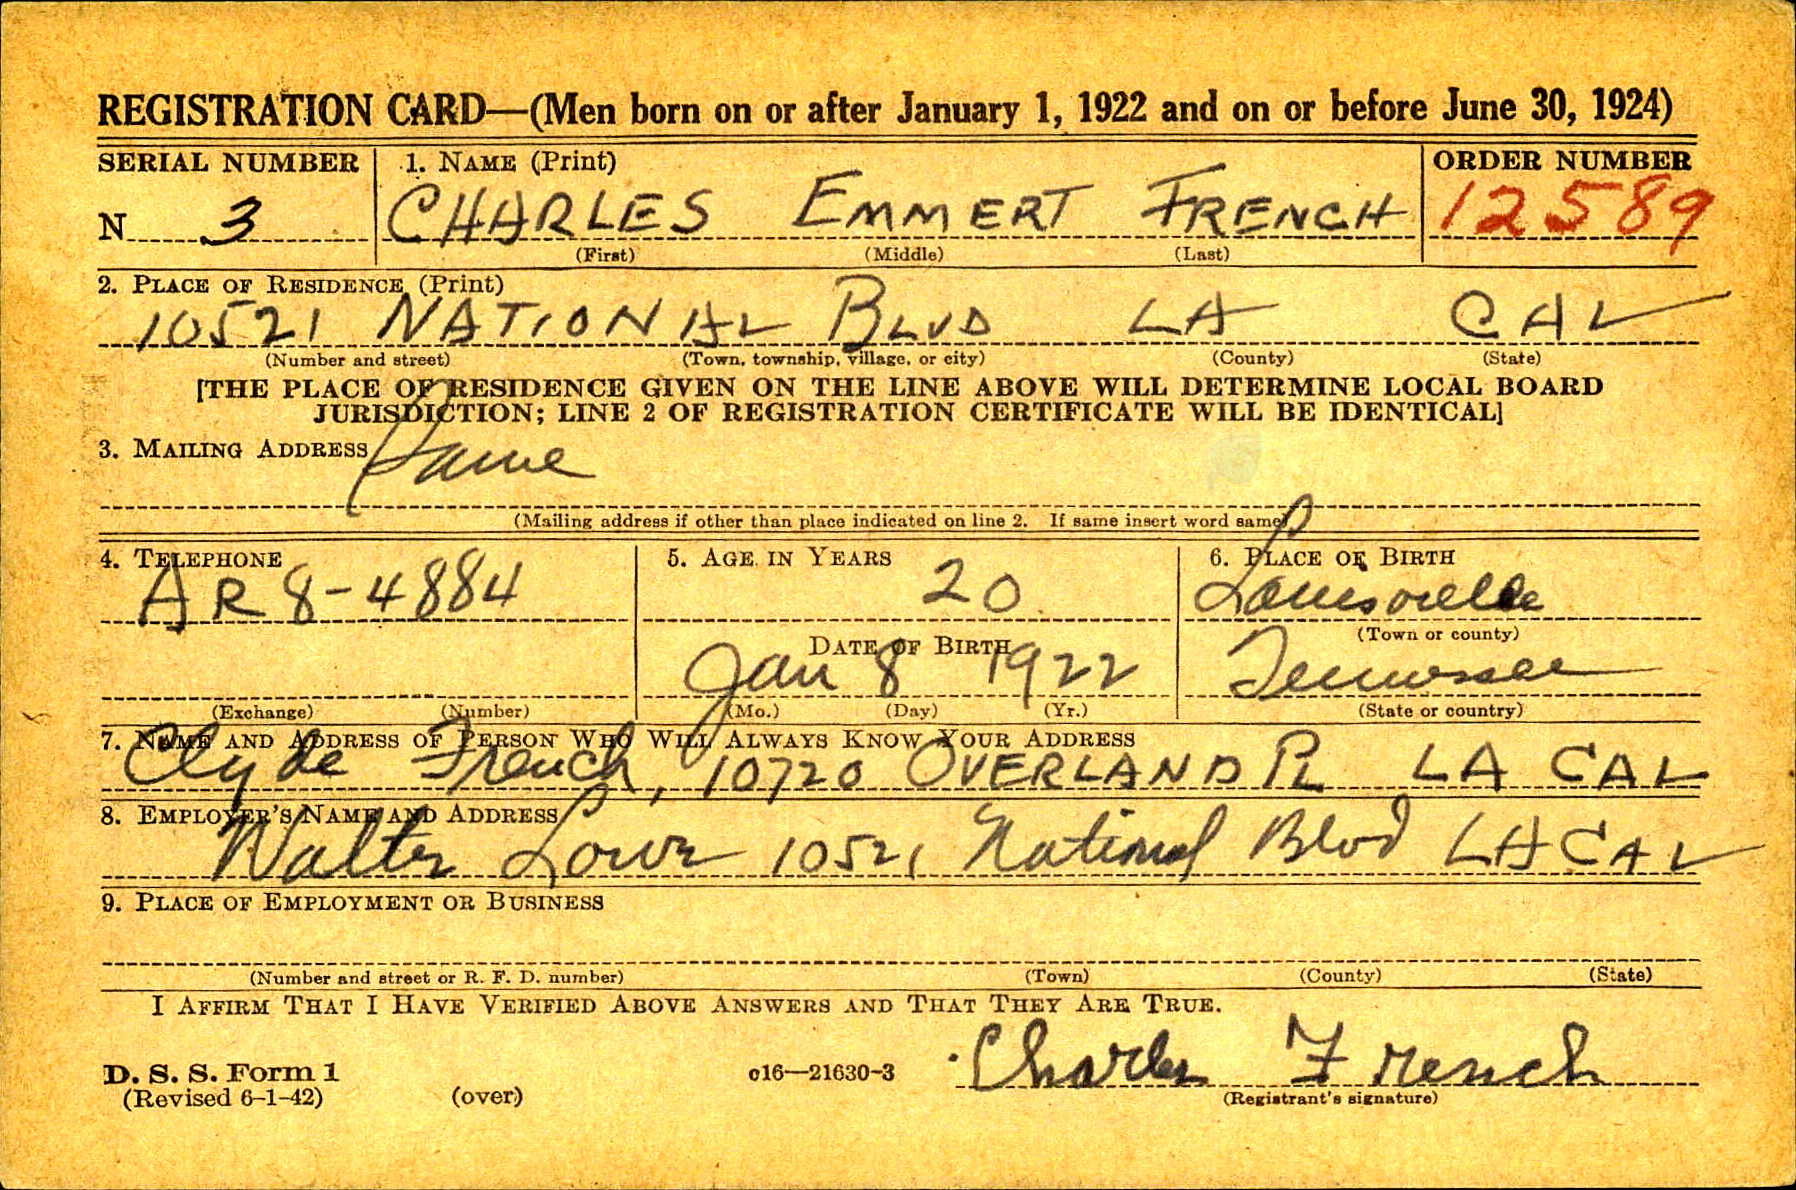 REGISTRATION CARD—(Men born on or after January 1, 1922 and on or before June 30, 1924)
SERIAL NUMBER 1. NAME (Print) ORDER NUMBER
N 3 CHARLES EMMERT FRENCH 12589
(First) (Middle) (Last)
2. PLACE OF RESIDENCE (Print)
10521 NATIONAL BLVD LA CAL
(Number and street) (Town, township, village, or city) (County) (State)
[THE PLACE OF RESIDENCE GIVEN ON THE LINE ABOVE WILL DETERMINE LOCAL BOARD
JURISDICTION; LINE 2 OF REGISTRATION CERTIFICATE WILL BE IDENTICAL]
3. MAILING ADDRESS Same
(Mailing address if other than place indicated on line 2. If same insert word same)
4. TELEPHONE 5. AGE IN YEARS 6. PLACE OF BIRTH
AR 8-4884 20 Louisville
(Town or county)
DATE OF BIRTH
Jan 8 1922 Tennessee
(Exchange) (Number) (Mo.) (Day) (Yr.) (State or country)
7. NAME AND ADDRESS OF PERSON WHO WILL ALWAYS KNOW YOUR ADDRESS
Clyde French, 10720 OVERLAND PL LA CAL
8. EMPLOYER'S NAME AND ADDRESS
Walter Lowe 10521 National Blvd LA CAL
9. PLACE OF EMPLOYMENT OR BUSINESS
(Number and street or R. F. D. number) (Town) (County) (State)
I AFFIRM THAT I HAVE VERIFIED ABOVE ANSWERS AND THAT THEY ARE TRUE.
D. S. S. Form 1 c16—21630-3 Charles French
(Revised 6-1-42) (over) (Registrant's signature)